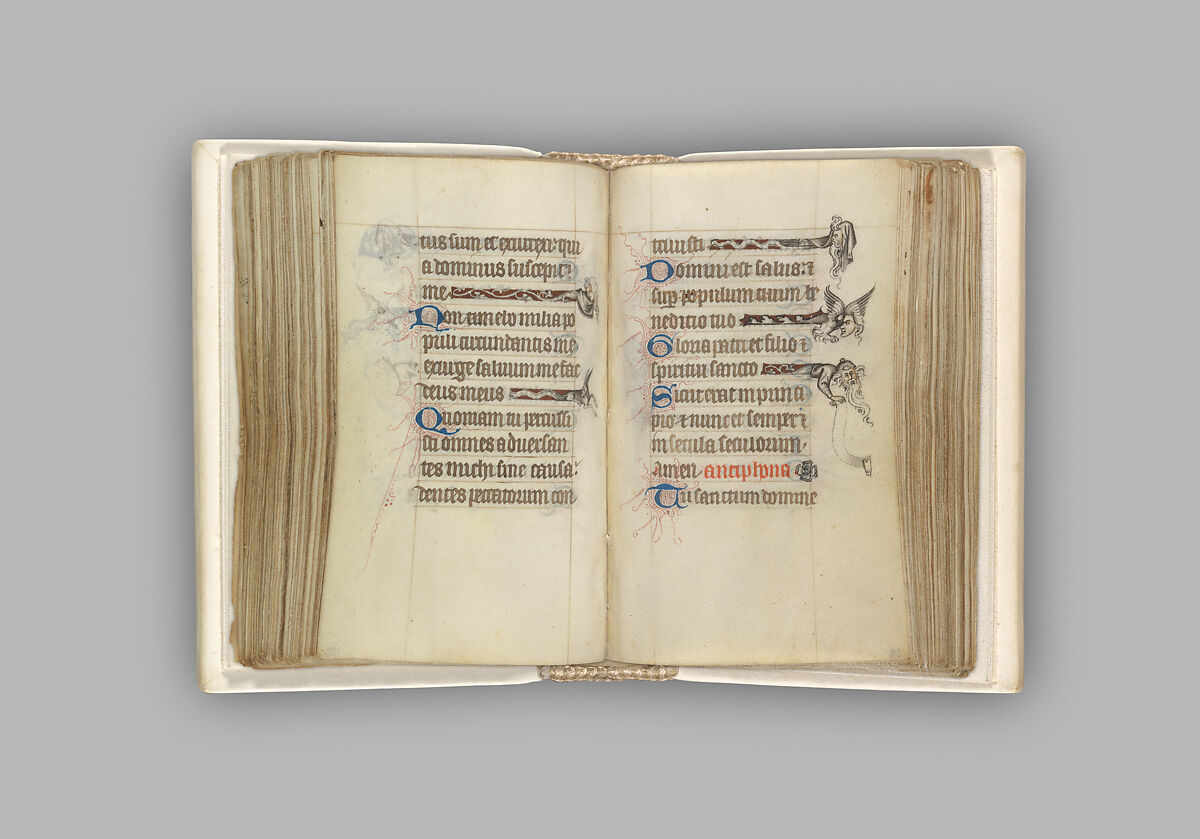 tus sum et exurrexi qui
a dominus suscepit
me
Non timebo milia po
puli circundantis me
exurge salvum me fac
deus meus
Quoniam tu percussi
sti omnes adversan
tes michi sine causa
dentes peccatorum con
trivisti
Domini est salus: et
sup populum tuum be
nedictio tua
Gloria patri et filio et
spiritui sancto
Sicut erat in princi
pio et nunc et semper et
in secula seculorum
amen antiphona
Tu sanctum domine